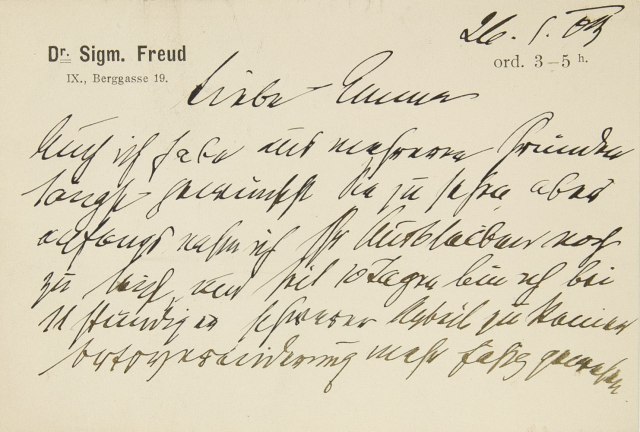 26. 1. 09
Dr. Sigm. Freud
IX., Berggasse 19.
ord. 3–5 h.
Liebe Emma
Auch ich habe aus mehreren Gründen
längst gewünscht Sie zu sehen aber
anfangs nahm ich Ihr Ausbleiben noch
zu und seit 10 Tagen bin ich bei
11 stündiger schwerer Arbeit zu keiner
Ortsveränderung mehr fähig gewesen